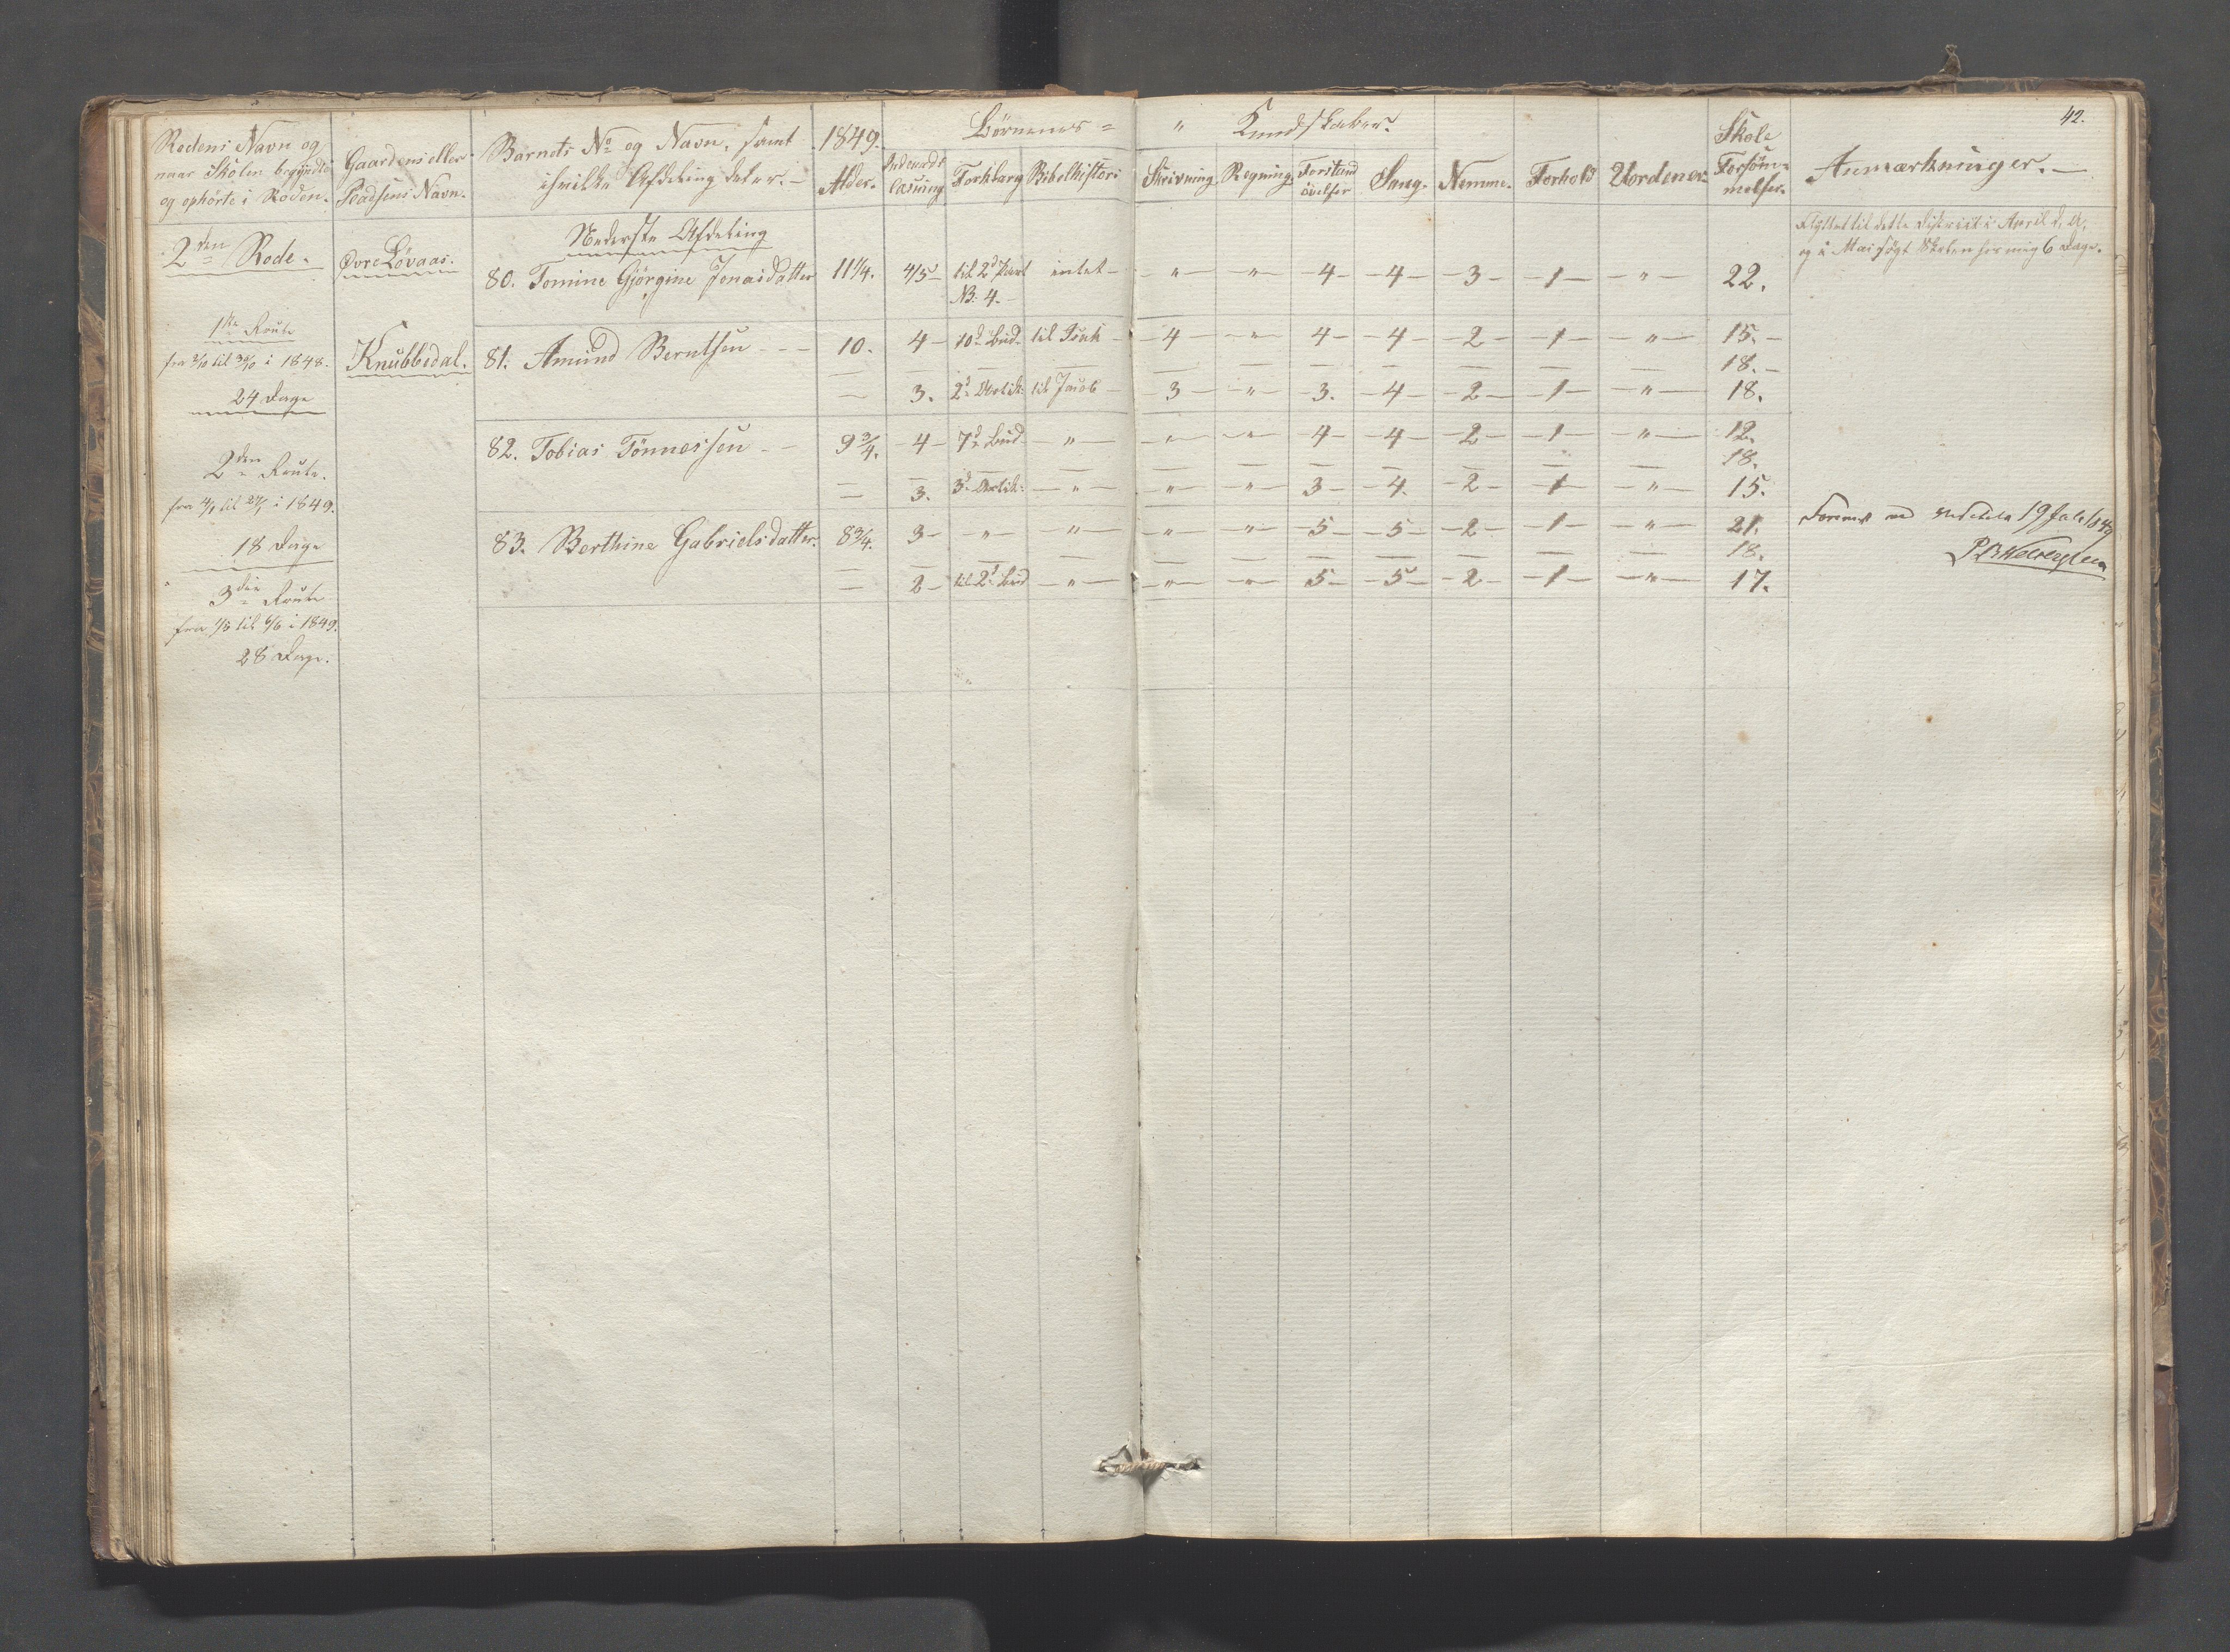 42.
Rodens Navn og
naar Skolen begyndte
og ophørte i Roden.
Gaardens eller
Pladsens Navn.
Barnets No og Navn, samt
i hvilke Afdeling det er.
1849.
Alder.
Børnenes = " Kundskaber.
Indenads
læsning
Forklaring
Bibelhistorie
Skrivning
Regning
Forstand
øvelser
Sang.
Nemme.
Forhold
Uordener
Skole
Forsøm=
melser
Anmærkninger.
2den Rode.
Øvre Løvaas.
Nederste Afdeling
Flyttet til dette District i April d. A.
og i Mai søgt Skolen for mig 6 Dage.
80. Tomine Gjørgine Jonasdatter 11 1/4. 4/5 til 2d Part intet " " 4 4 3 1 " 22.
NB: 4.
1ste Route
fra 3/10 til 30/10 i 1848.
24 Dage
Knubbedal.
81. Amund Berntsen 10. 4 10d Bud til Isak 4 " 4 4 2 1 " 15.
18.
3. 2d Artik: til Jacob 3 " 3. 4 2 1 " 18.
2den Route.
fra 4/1 til 24/1 i 1849.
18 Dage
82. Tobias Tønnessen 9 3/4. 4 7d Bud " " " 4 4 2 1 " 12.
18.
3. 3d Artik: " " " 3 4. 2 1 " 15.
83. Berthine Gabrielsdatter. 8 3/4. 3 " " " " 5 5 2 1 " 21.
18.
2 til 2d Bud " " " 5 5 2 1 " 17.
19 Juli 1849
3die Route
fra 1/5 til 6/6 i 1849.
28 Dage.